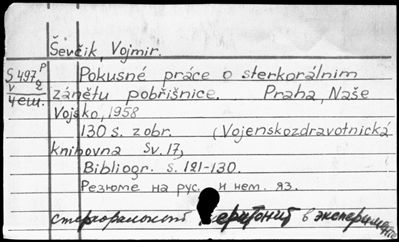 Ševčik, Vojmir.
S 497, P
v 2
4 em.
Pokusné práce o sterkorálnim
zánětu pobřišnice. Praha, Naše
Vojsko, 1958
130 s. zobr. (Vojenskozdravotnická
knihovna Sv. 17,
Bibliogr. s. 121-130.
Резюме на рус. и нем. яз.
перитонит в эксперименте